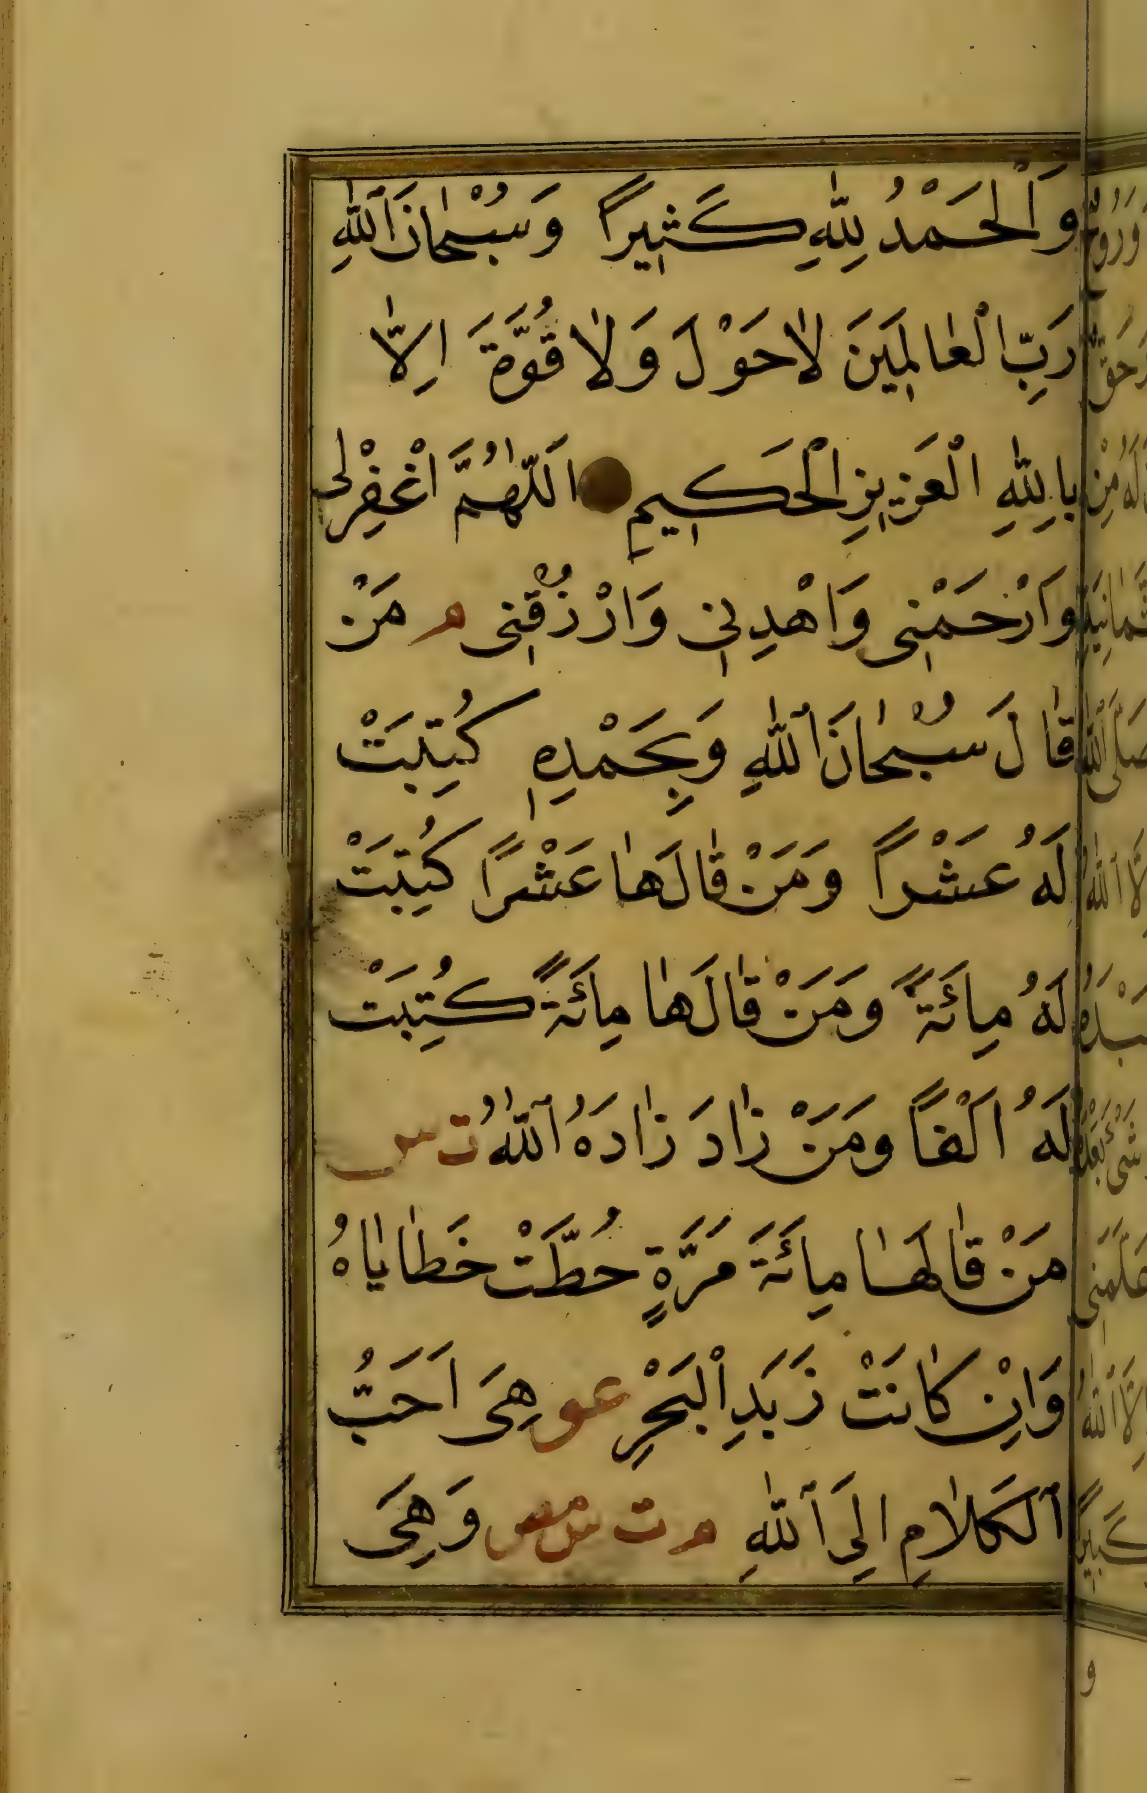 وَالْحَمْدُ لِلّٰهِ كَثِيرًا وَسُبْحَانَ اللّٰهِ
رَبِّ الْعَالَمِينَ لَاحَوْلَ وَلَا قُوَّةَ اِلَّا
بِاللّٰهِ الْعَزِيزِ الْحَكِيمِ اَللّٰهُمَّ اغْفِرْلِى
وَارْحَمْنِى وَاهْدِنِى وَارْزُقْنِى م مَنْ
قَالَ سُبْحَانَ اللّٰهِ وَبِحَمْدِهِ كُتِبَتْ
لَهُ عَشْرًا وَمَنْ قَالَهَا عَشْرًا كُتِبَتْ
لَهُ مِائَةً وَمَنْ قَالَهَا مِائَةً كُتِبَتْ
لَهُ اَلْفًا وَمَنْ زَادَ زَادَهُ اللّٰهُ ت س
مَنْ قَالَهَا مِائَةَ مَرَّةٍ حُطَّتْ خَطَايَاهُ
وَاِنْ كَانَتْ زَبَدِ الْبَحْرِ عو هِىَ اَحَبُّ
الْكَلَامِ اِلَى اللّٰهِ م ت س مس وَهِىَ